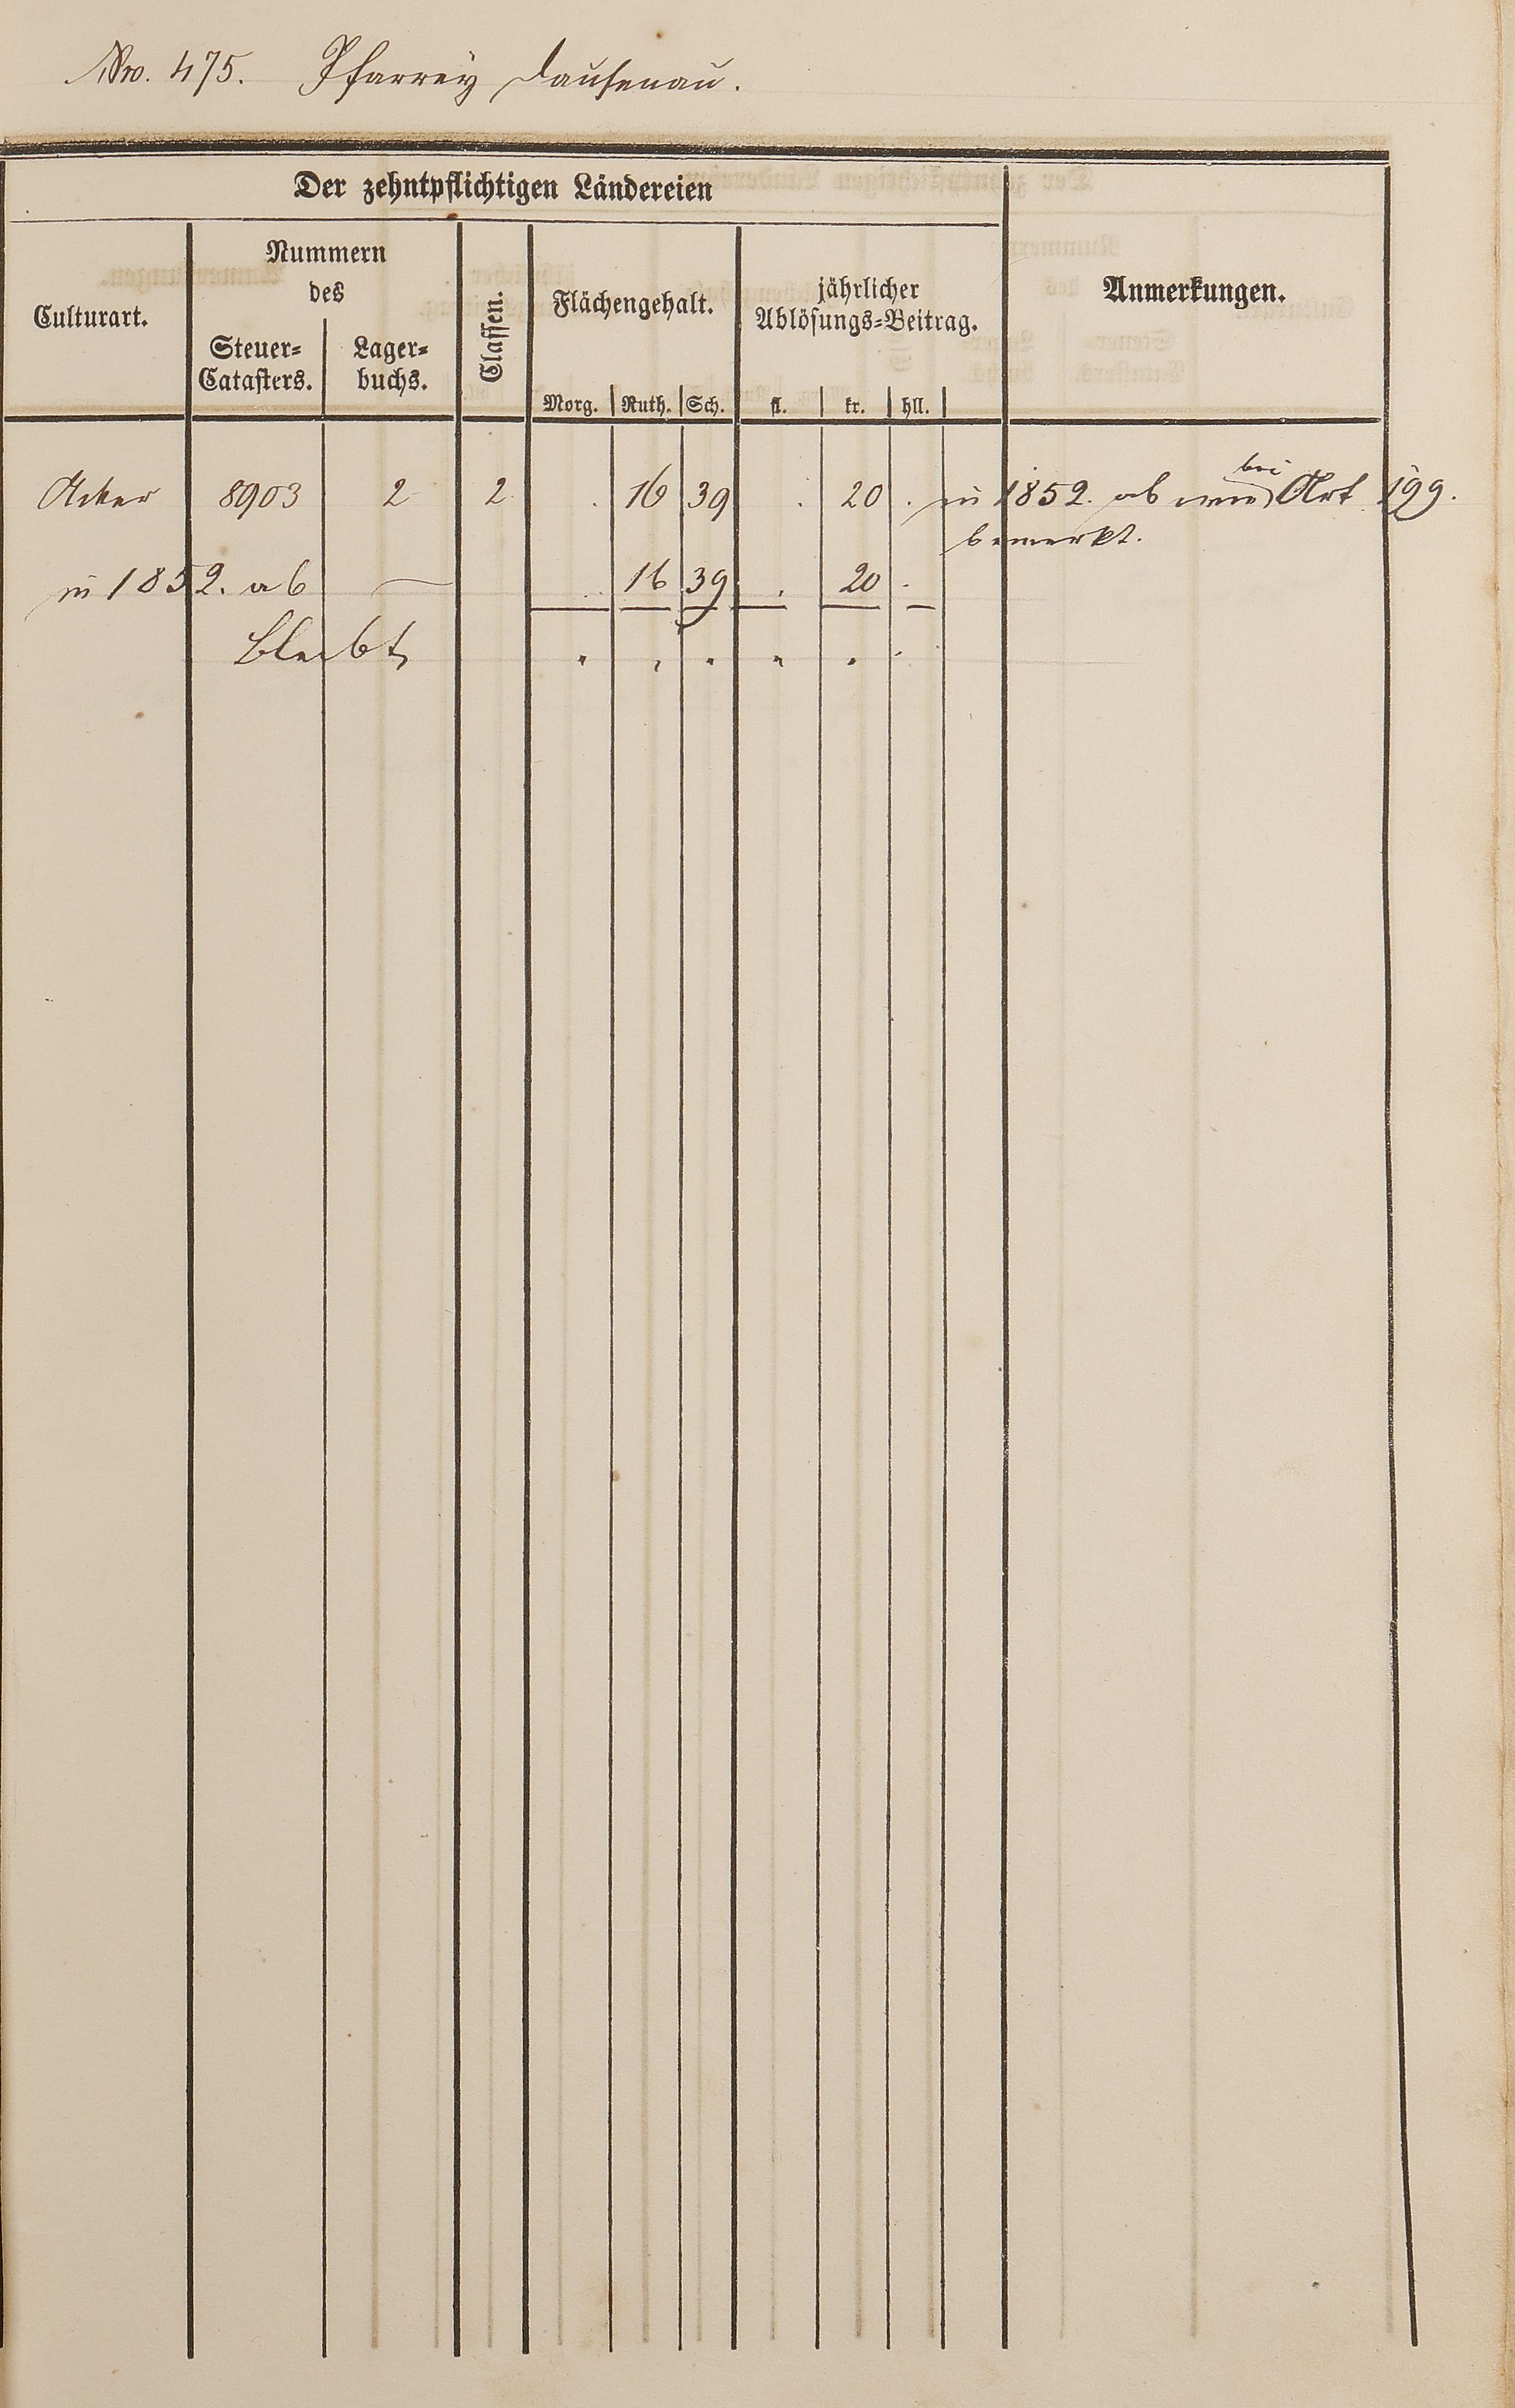 Nro. 475. Pfarrey Dausenau.
Der zehntpflichtigen Ländereien
Culturart.
Nummern
des
Steuer-
Catasters.
Lager-
buchs.
Classen.
Flächengehalt.
Morg. Ruth. Sch.
jährlicher
Ablösungs-Beitrag.
fl. kr. hll.
Anmerkungen.
Acker 8903 2 2 . 16 39 . 20 . in 1852. ab wie bei Art 199.
bemerkt.
in 1852. ab — . 16 39 . 20 .
bleibt . . . . . .